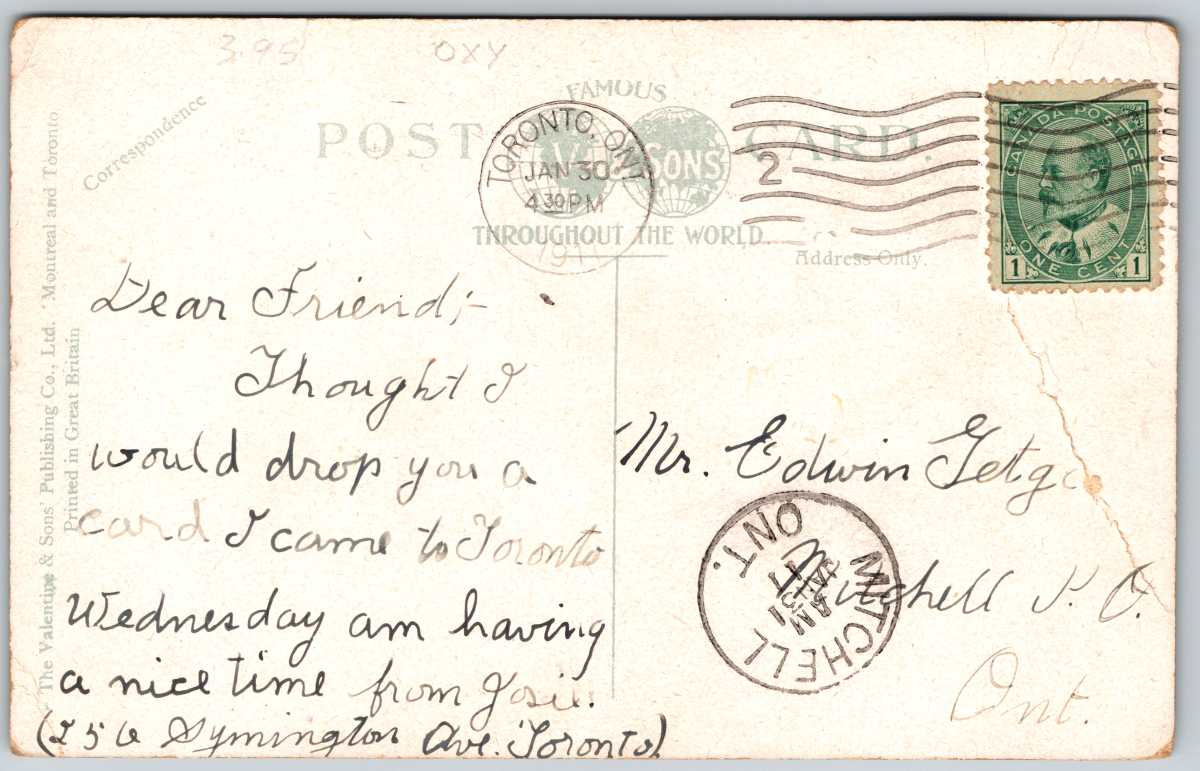 3.95 OXY
Correspondence
FAMOUS
POST CARD.
SONS
THROUGHOUT THE WORLD.
Address Only.
TORONTO, ONT
JAN 30
4 30 PM
1911
2
CANADA POSTAGE
1 ONE CENT 1
The Valentine & Sons' Publishing Co., Ltd. Montreal and Toronto
Printed in Great Britain
Dear Friend;-
Thought I
would drop you a
card I came to Toronto
Wednesday am having
a nice time from Josie.
Symington Ave. Toronto)
Mr. Edwin
Mitchell P.O.
Ont.
MITCHELL ONT.
AM
JA 31
11